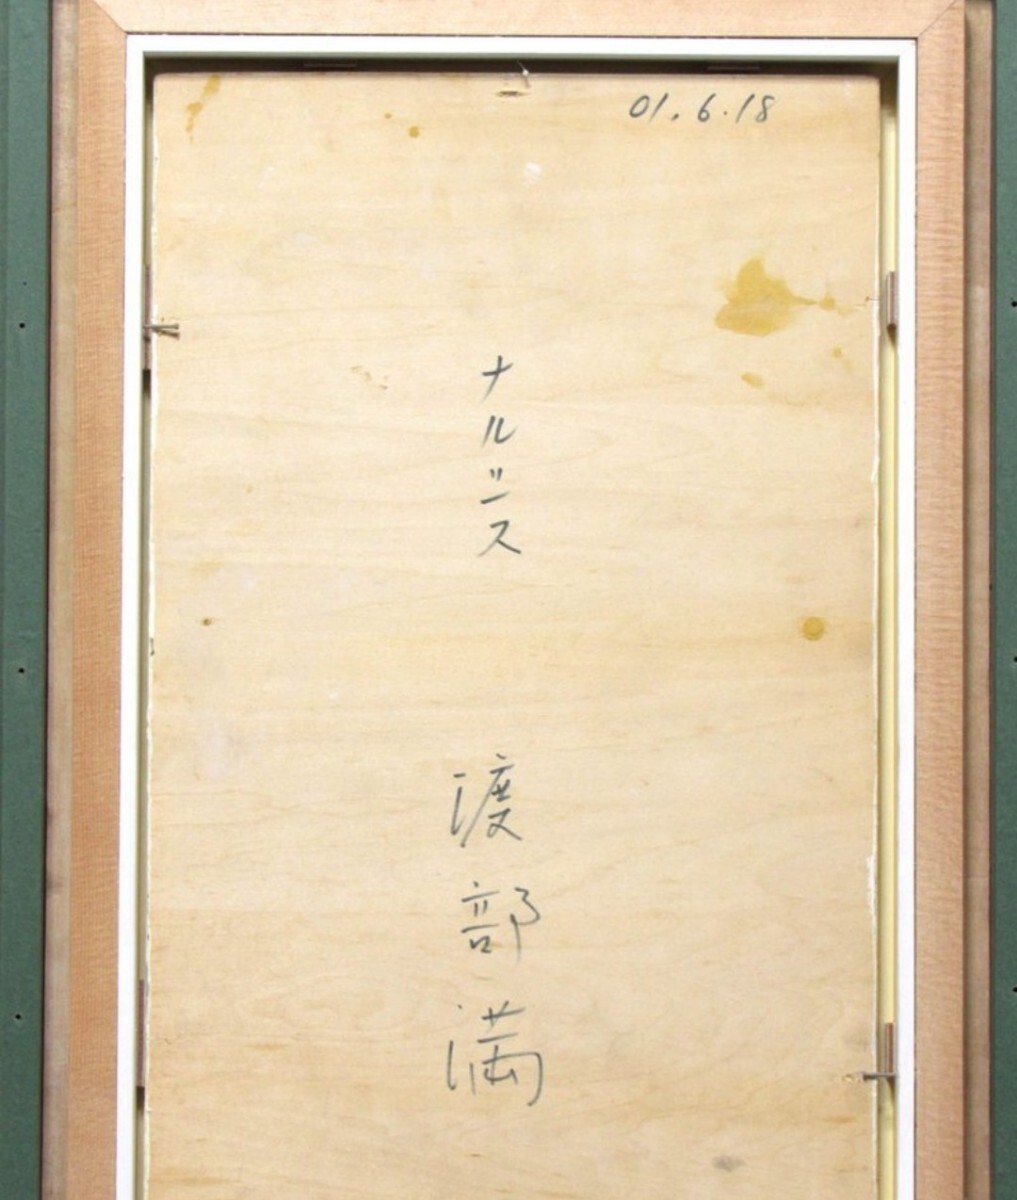 01.6.18
ナルシス
渡部満